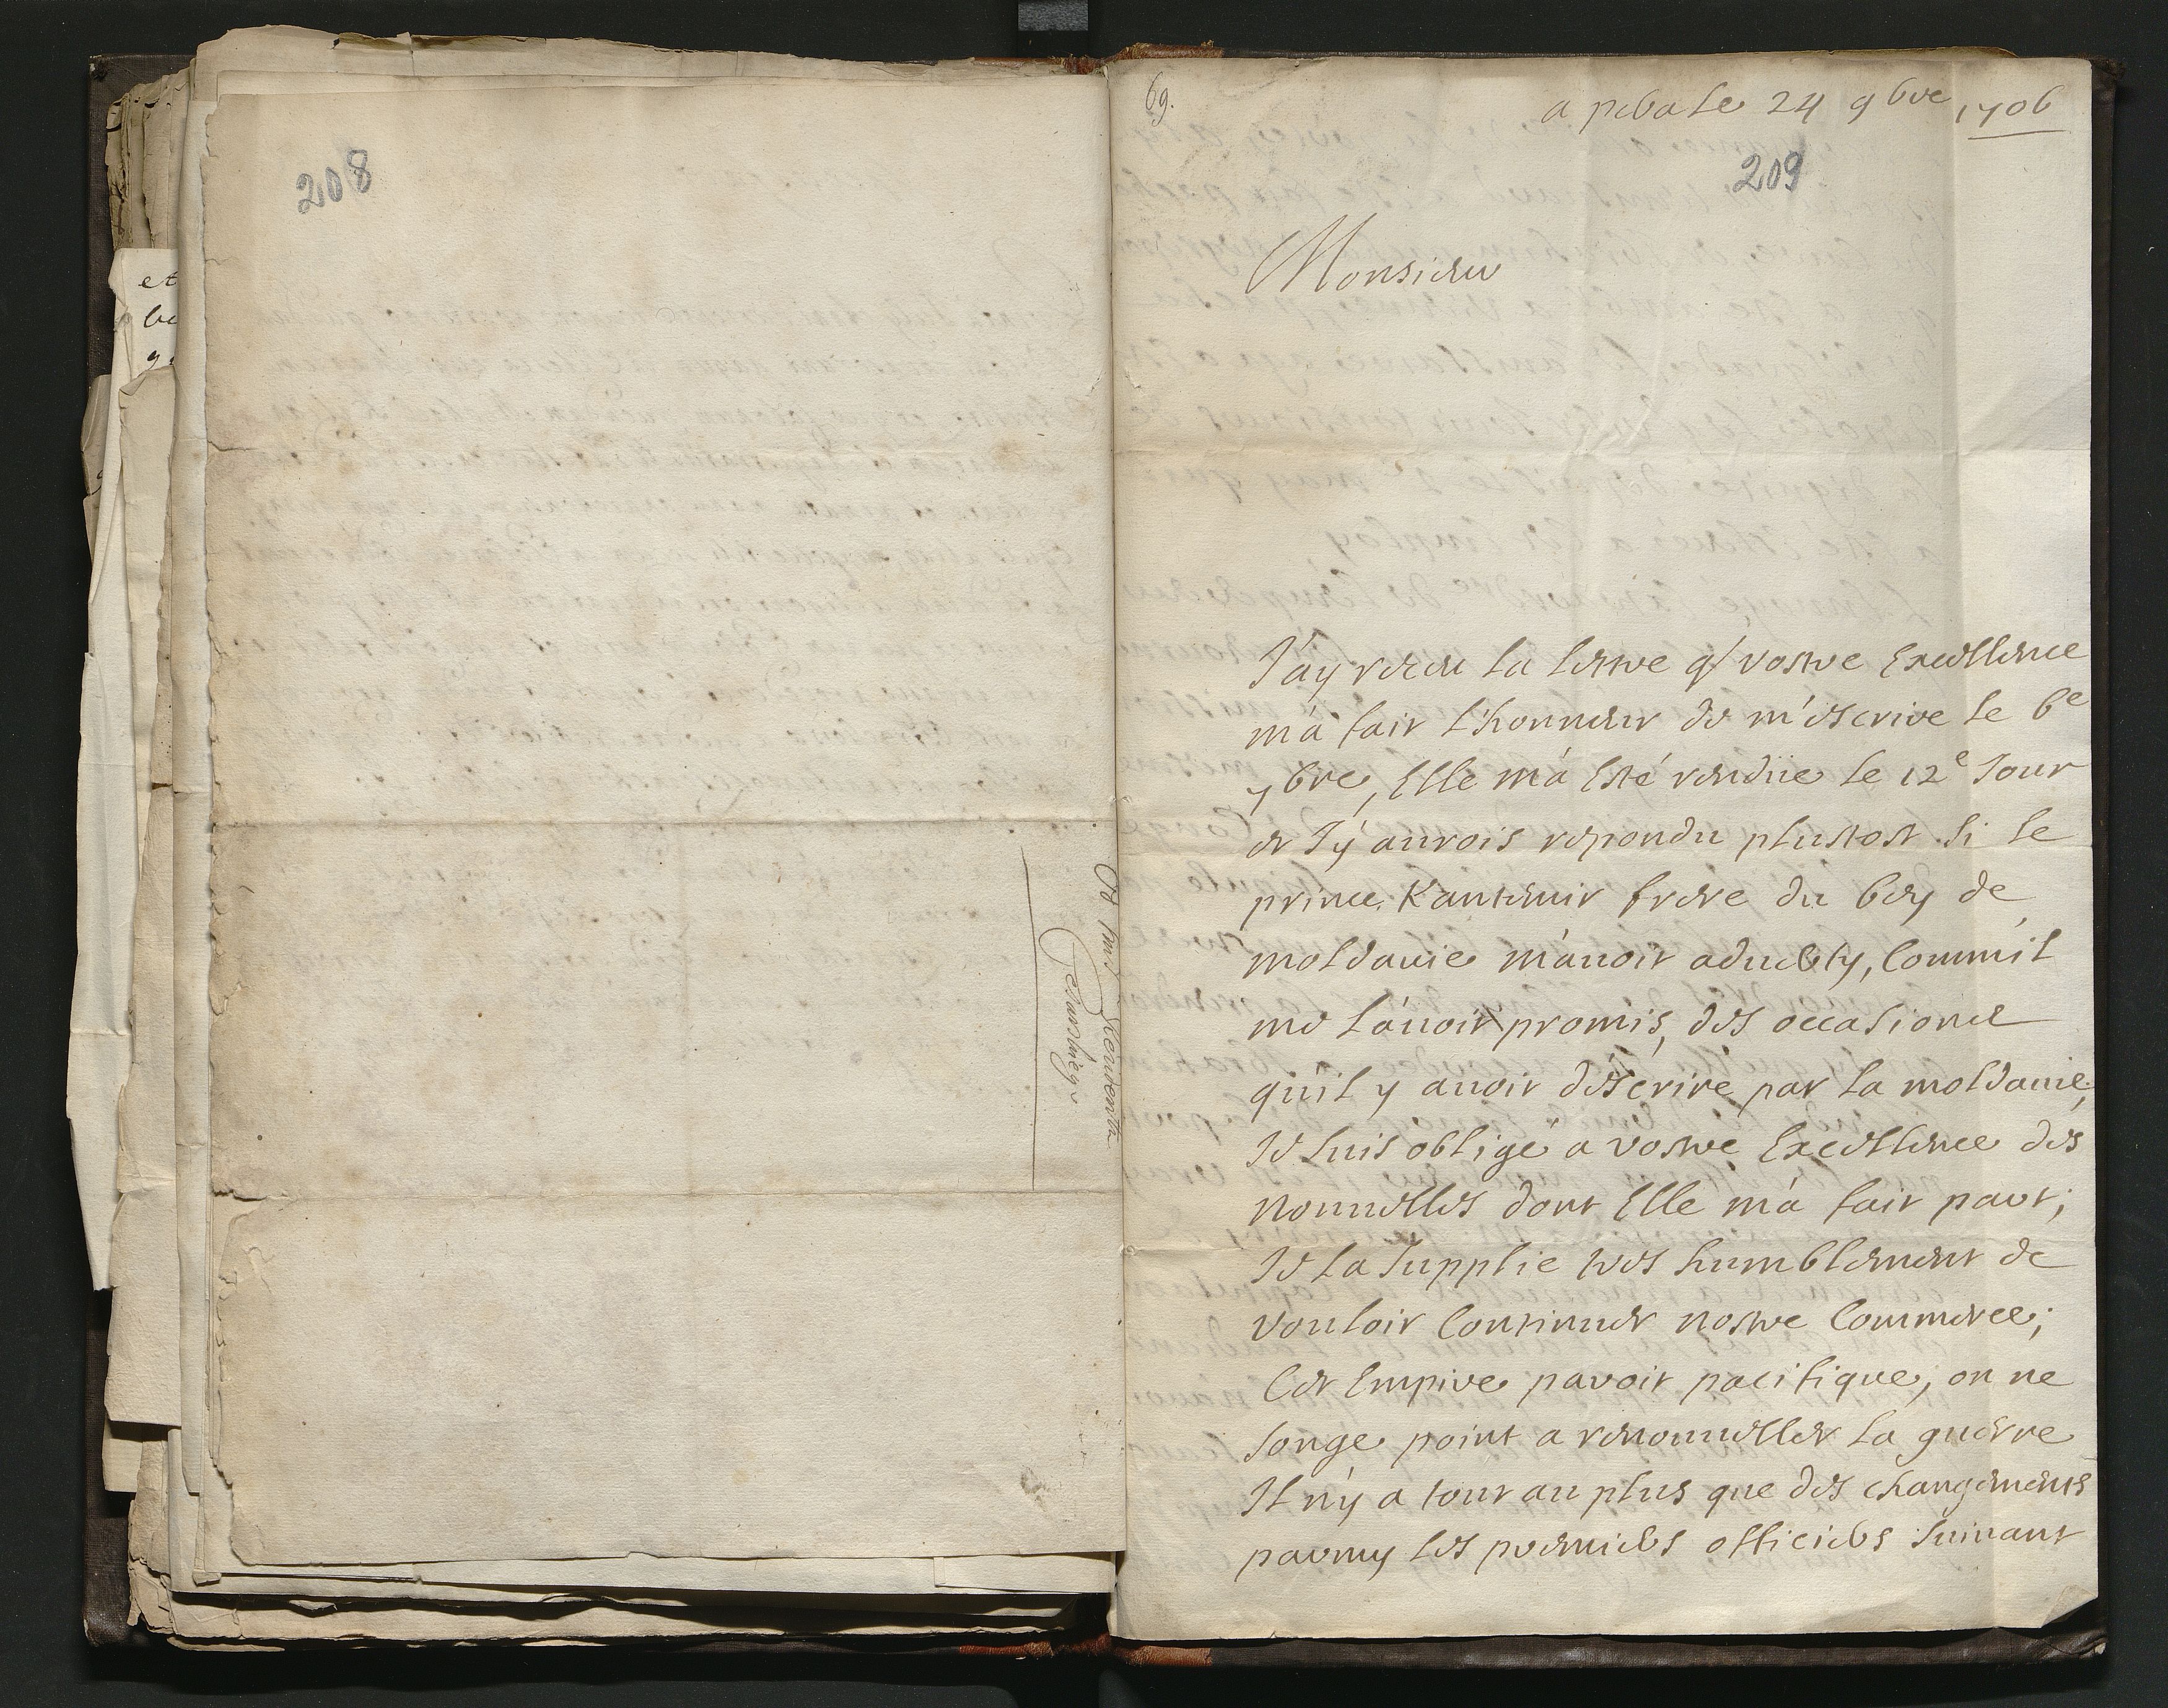 208
69.
a pera le 24 9bre 1706
209
Monsieur
J'ay receu la lettre q/ vostre Excellence
m'a fait l'honneur de m'escrire le 6e
7bre, Elle m'a Esté rendüe le 12e Jour
et J'y aurois repondu plustost si le
prince Kantemir frere du bey de
moldavie m'avoit aduerty, comm'il
me l'avoit promis, des occasions
qu'il y avoit d'escrire par la moldavie;
Je suis obligé a vostre Excellence des
nouuelles dont Elle m'a fait part;
Je la supplie tres humblement de
vouloir continuer nostre commerce;
Cet Empire paroit pacifique, on ne
songe point a renouueller la guerre
Il n'y a tout au plus que des changements
parmy les premiers officiers suivant
et